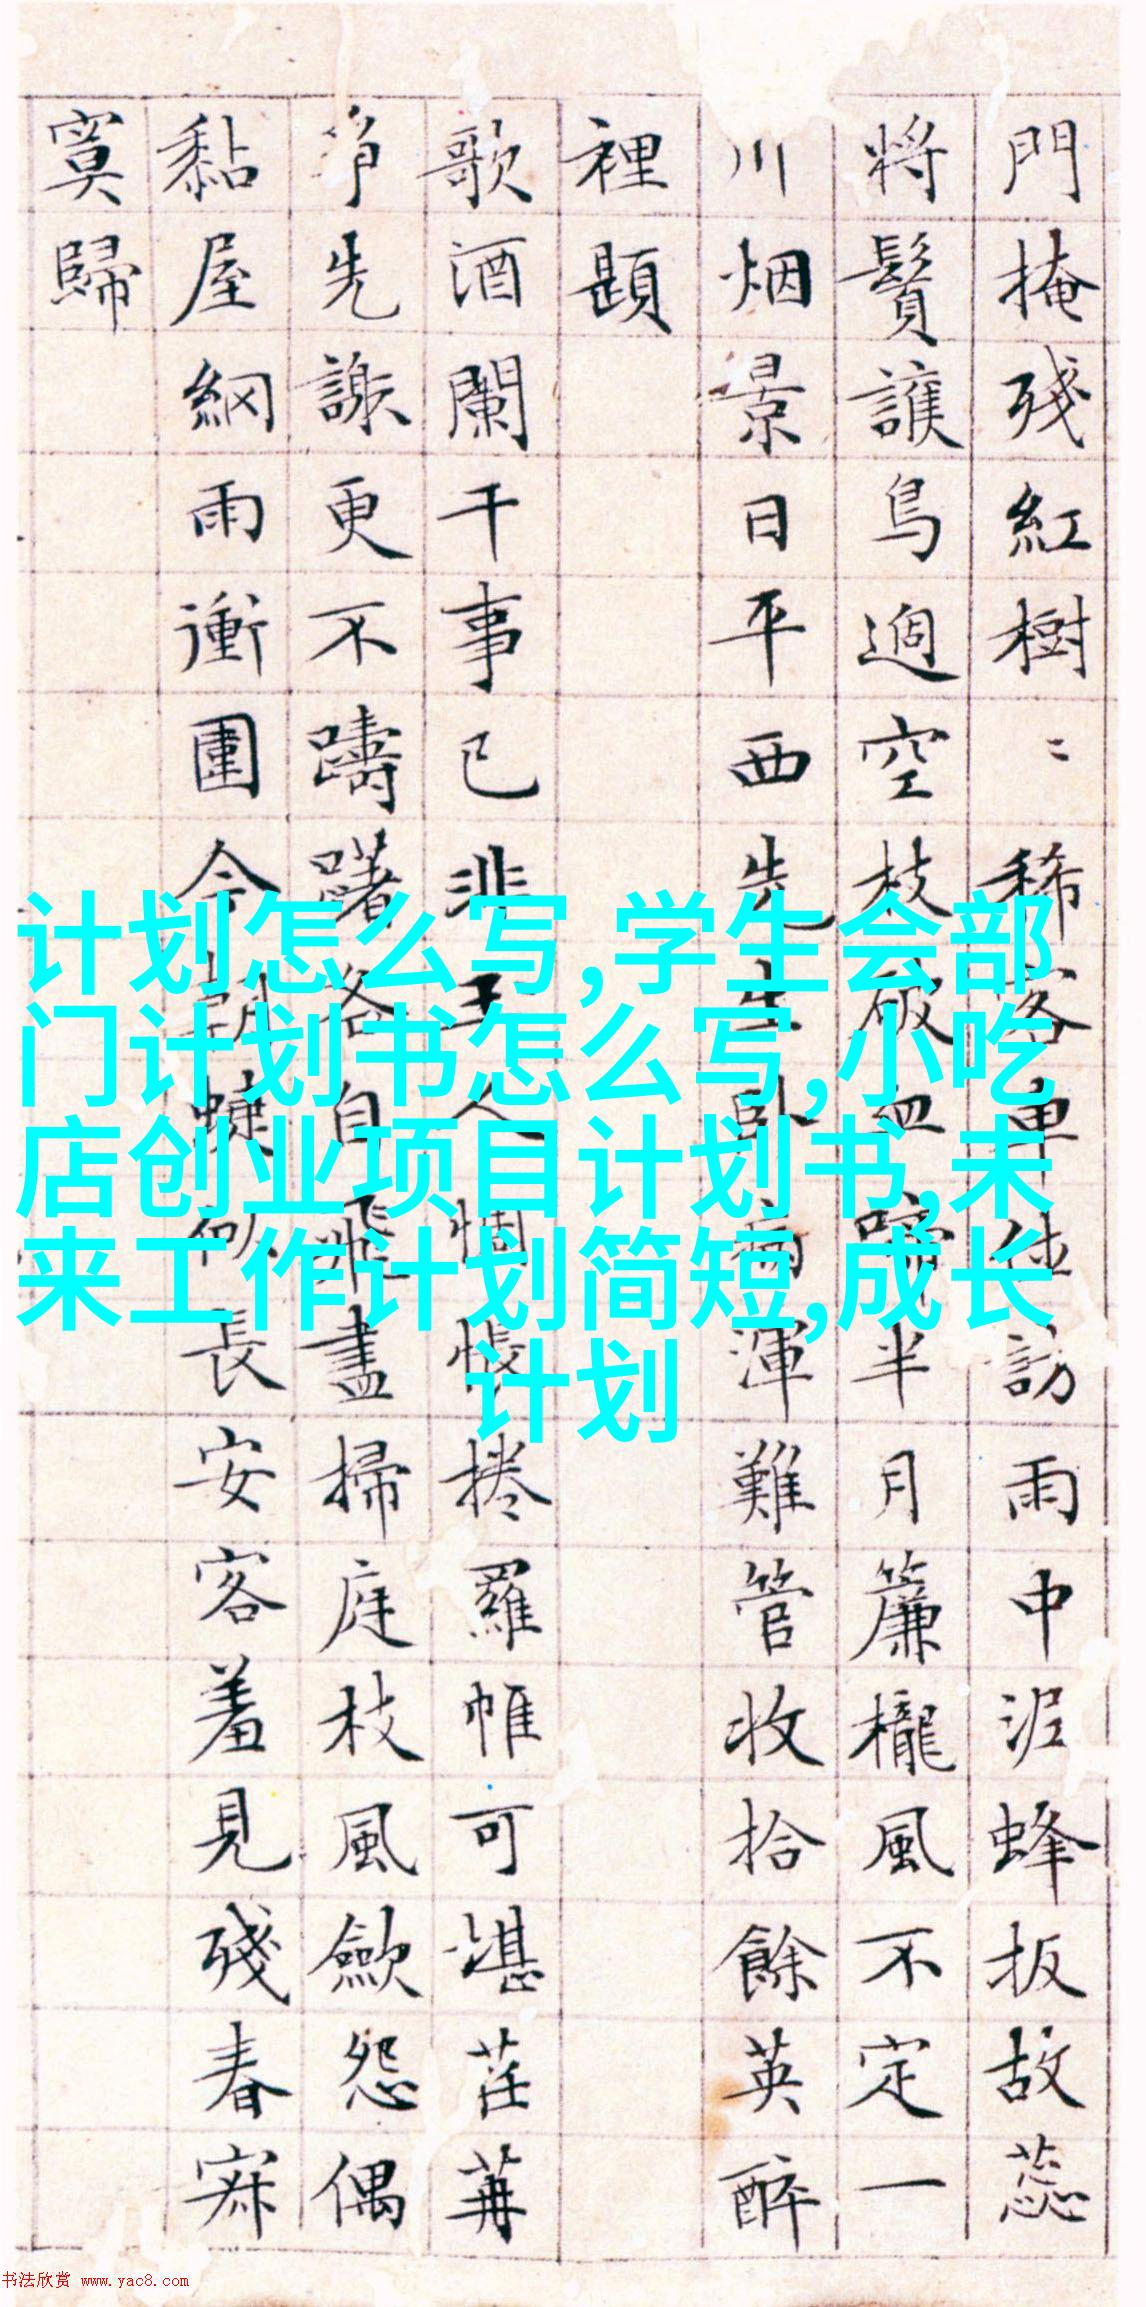 門掩殘紅樹〻稀客車訪雨中泥蜂扳故蕊
將鬢護鳥過空枝破血啼半月簾櫳風不定一
川烟景日平西先生卧病渾難管收拾餘英醉
裡題
歌酒闌干事已非主人惆悵捲羅帷可堪荏苒
爭先謝更不躊躇各自飛盡掃庭枝風歛怨偶
黏屋網雨衝圍今朝似長安客羞見殘春寂
寞歸
计划怎么写,学生会部
门计划书怎么写,小吃
店创业项目计划书,未
来工作计划简短,成长
计划
书法欣赏 www.yac8.com